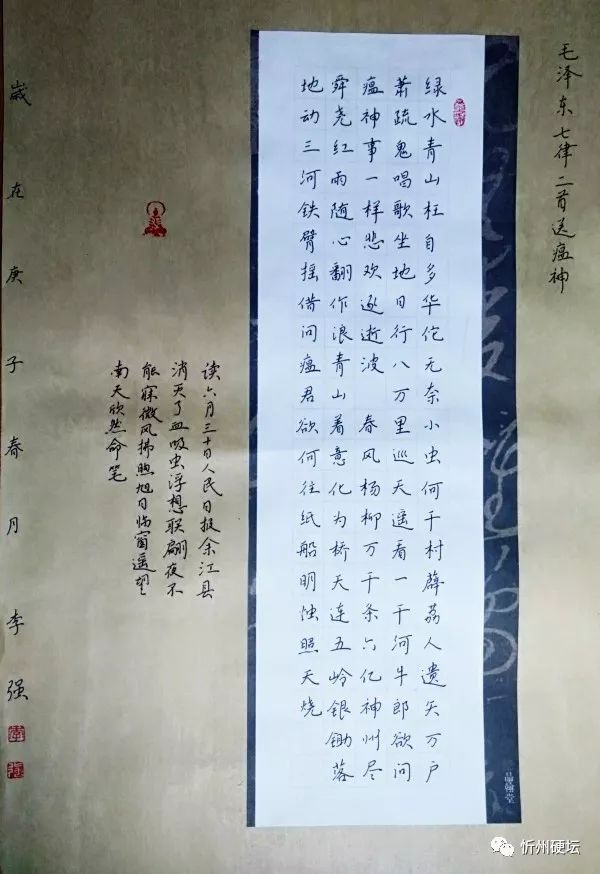 毛泽东七律二首送瘟神
绿水青山枉自多华佗无奈小虫何千村薜荔人遗矢万户
萧疏鬼唱歌坐地日行八万里巡天遥看一千河牛郎欲问
瘟神事一样悲欢逐逝波 春风杨柳万千条六亿神州尽
舜尧红雨随心翻作浪青山着意化为桥天连五岭银锄落
地动三河铁臂摇借问瘟君欲何往纸船明烛照天烧
读六月三十日人民日报余江县
消灭了血吸虫浮想联翩夜不
能寐微风拂煦旭日临窗遥望
南天欣然命笔
歲在庚子春月李强
忻州硬坛